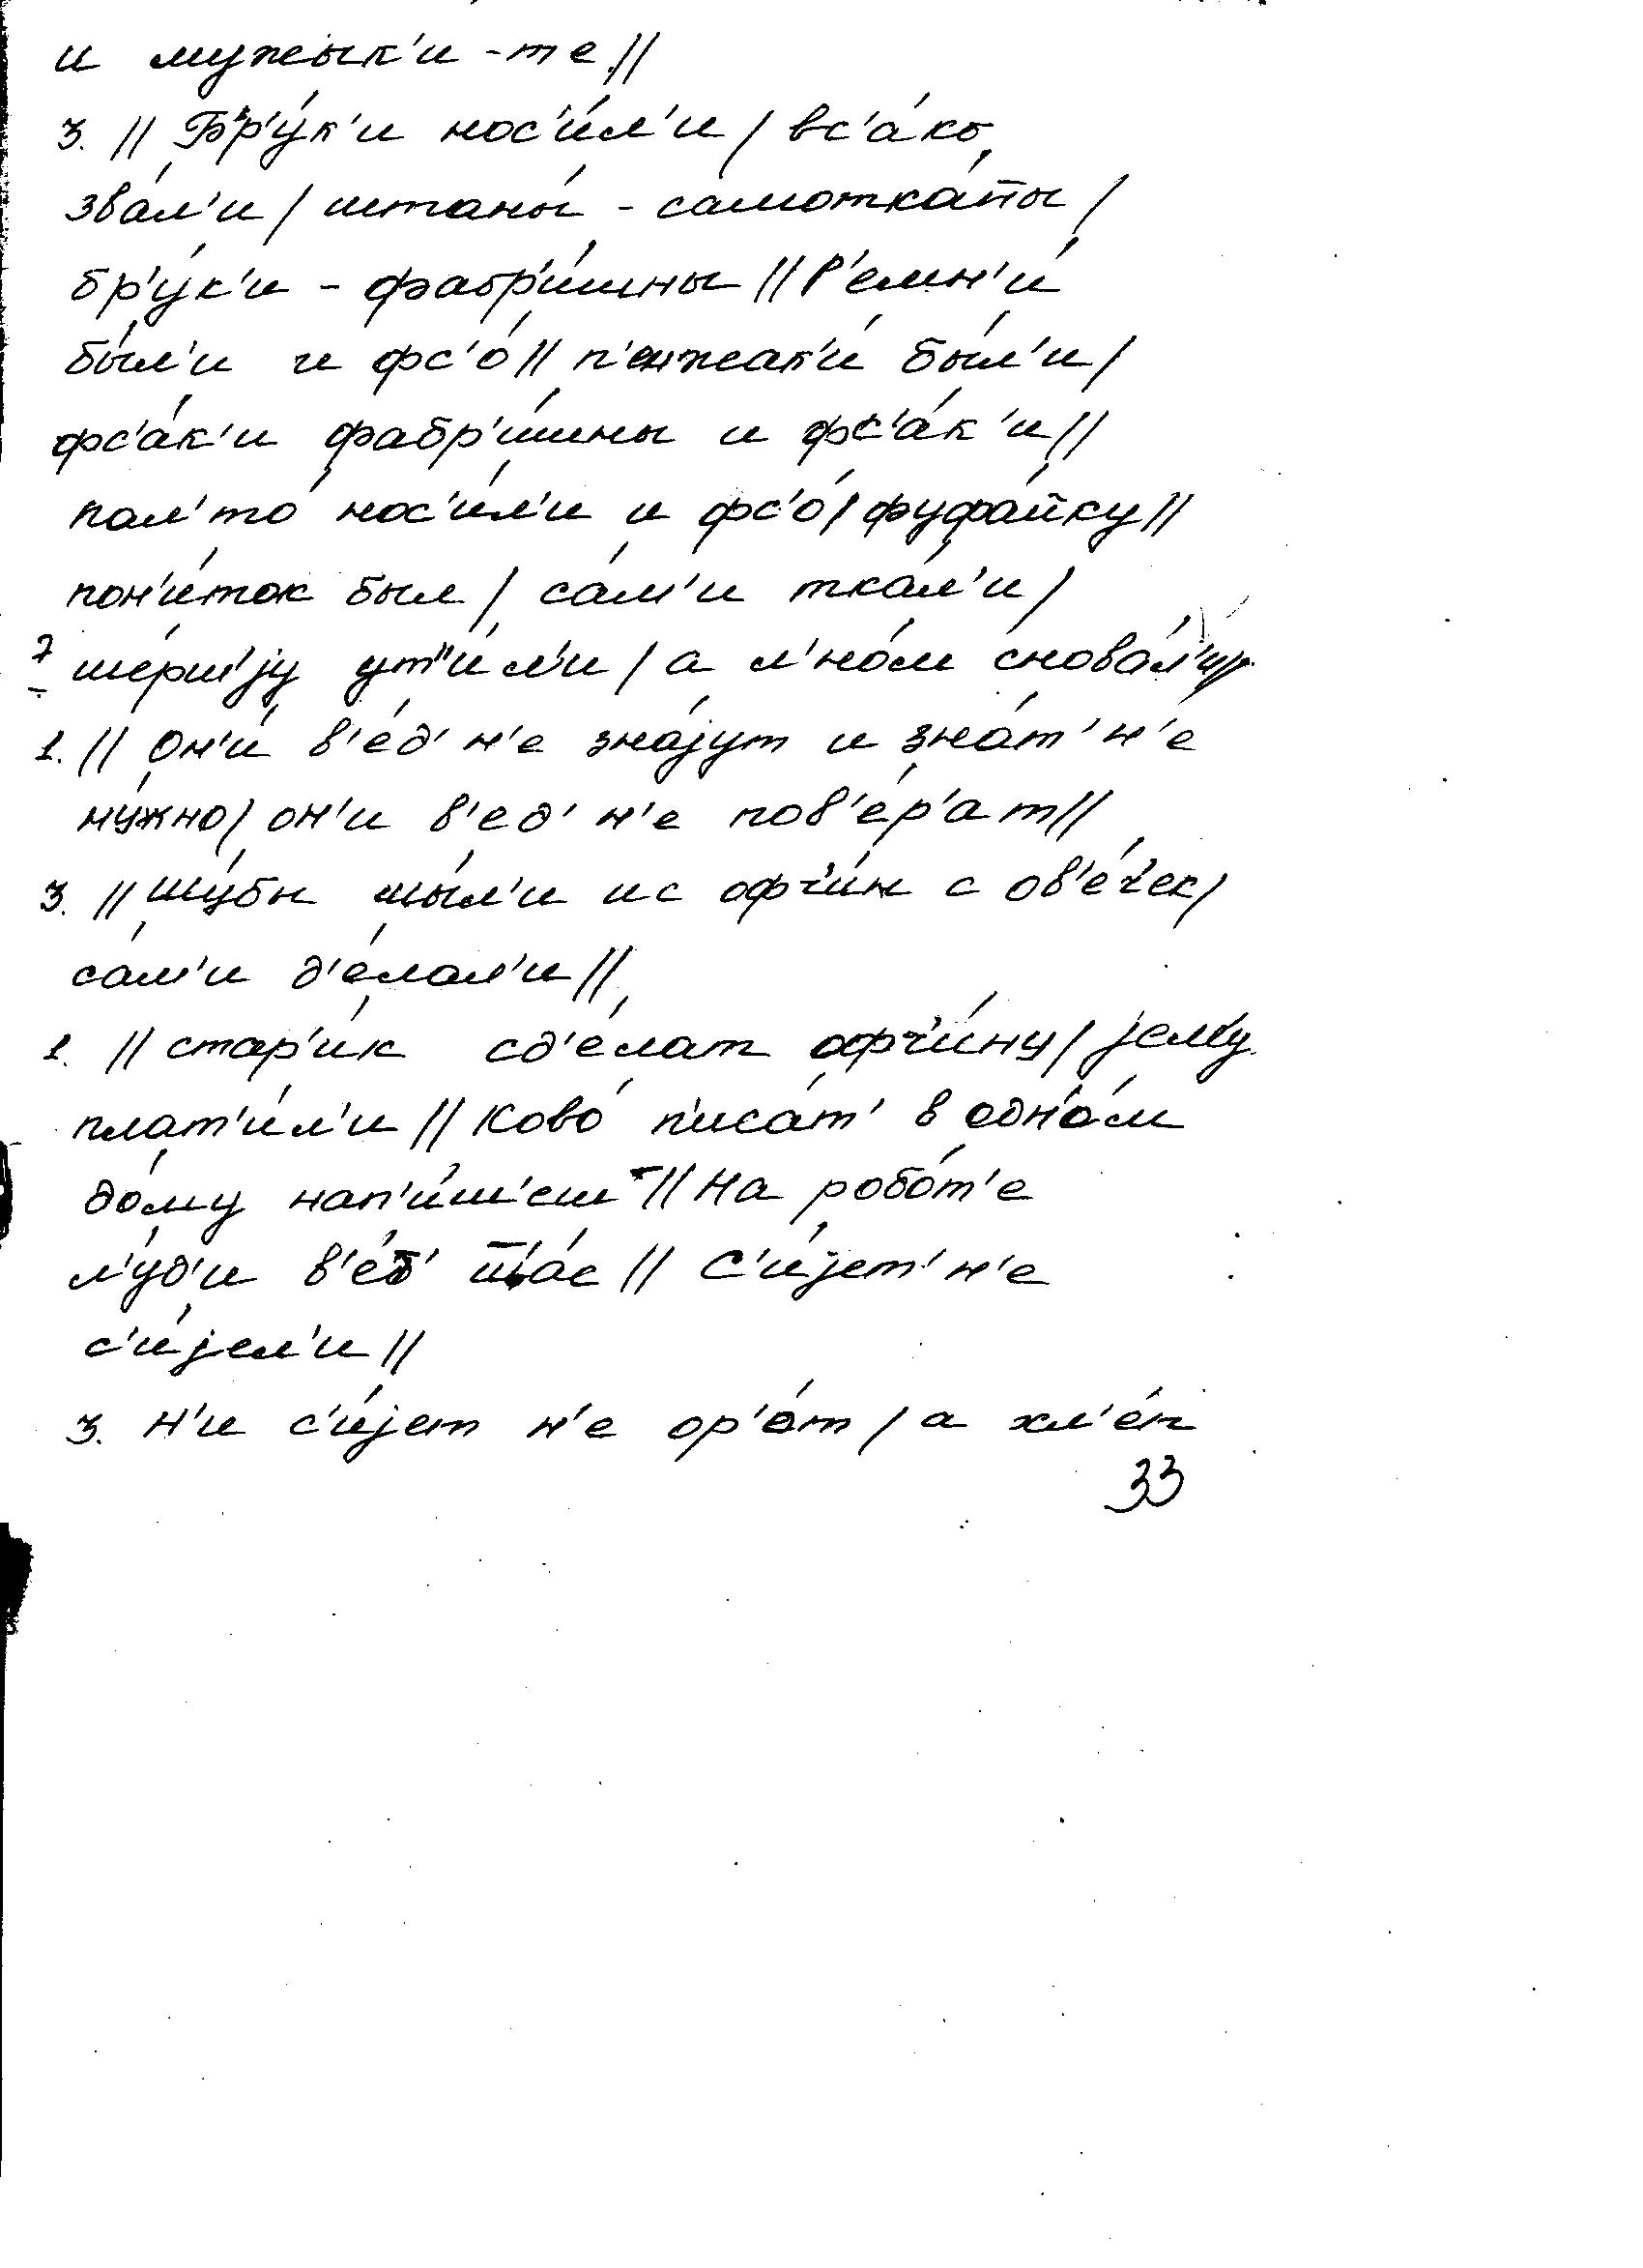 и мужык'и -те //
3. // Бр'у́к'и нос'и́л'и / вс'а́ко
зва́л'и / штаны́ - самотка́ны /
бр'у́к'и - фабр'и́шны // Р'емн'и́
бы́л'и и фс'о́ // п'инжак'и́ бы́л'и /
фс'а́к'и фабр'и́шны и фс'а́к'и //
пал'то́ нос'и́л'и и фс'о́ / фуфа́йку //
пон'и́ток был / са́м'и тка́л'и /
ше́рш'jу ут'и́л'и / а л'но́м снова́л'и //
1. // Он'и́ в'е́д' н'е зна́jут и зна́т' н'е
ну́жно / он'и в'ед' н'е пов'е́р'ат //
3. // Шу́бы шы́л'и ис офч'и́н с ов'е́чек /
са́м'и д'е́лал'и //
1. // стар'и́к сд'е́лат офч'и́ну / jему́
плат'и́л'и // Ково́ п'иса́т' в одно́м
до́му нап'и́ш'еш // На робо́т'е
л'у́д'и в'е́т' ш'а́с // С'и́jет' н'е
с'и́jел'и //
3. Н'и с'и́jет н'е ор'о́т / а хл'е́п
33